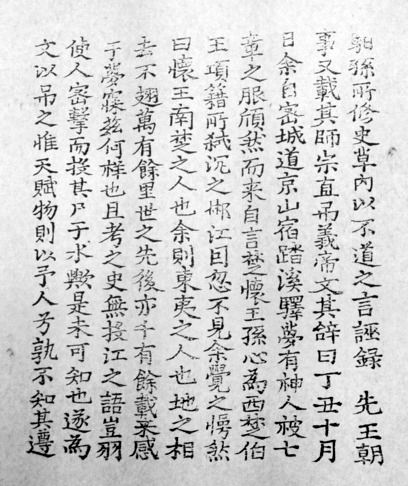 馹孫所修史草內以不道之言誣錄　先王朝
事又載其師宗直吊義帝文其辭曰丁丑十月
日余自密城道京山宿踏溪驛夢有神人被七
章之服頎然而来自言楚懷王孫心為西楚伯
王項籍所弑沉之郴江因忽不見余覺之愕然
曰懷王南楚之人也余則東夷之人也地之相
去不翅萬有餘里世之先後亦千有餘載来感
于夢寐玆何祥也且考之史無投江之語豈羽
使人密擊而投其尸于水歟是未可知也遂為
文以吊之惟天賦物則以予人兮孰不知其遵